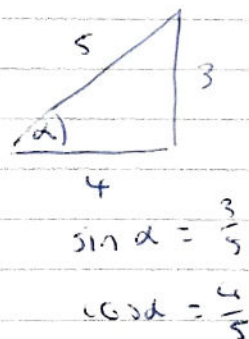 5
3
α
4
sin α = 3/5
cos α = 4/5